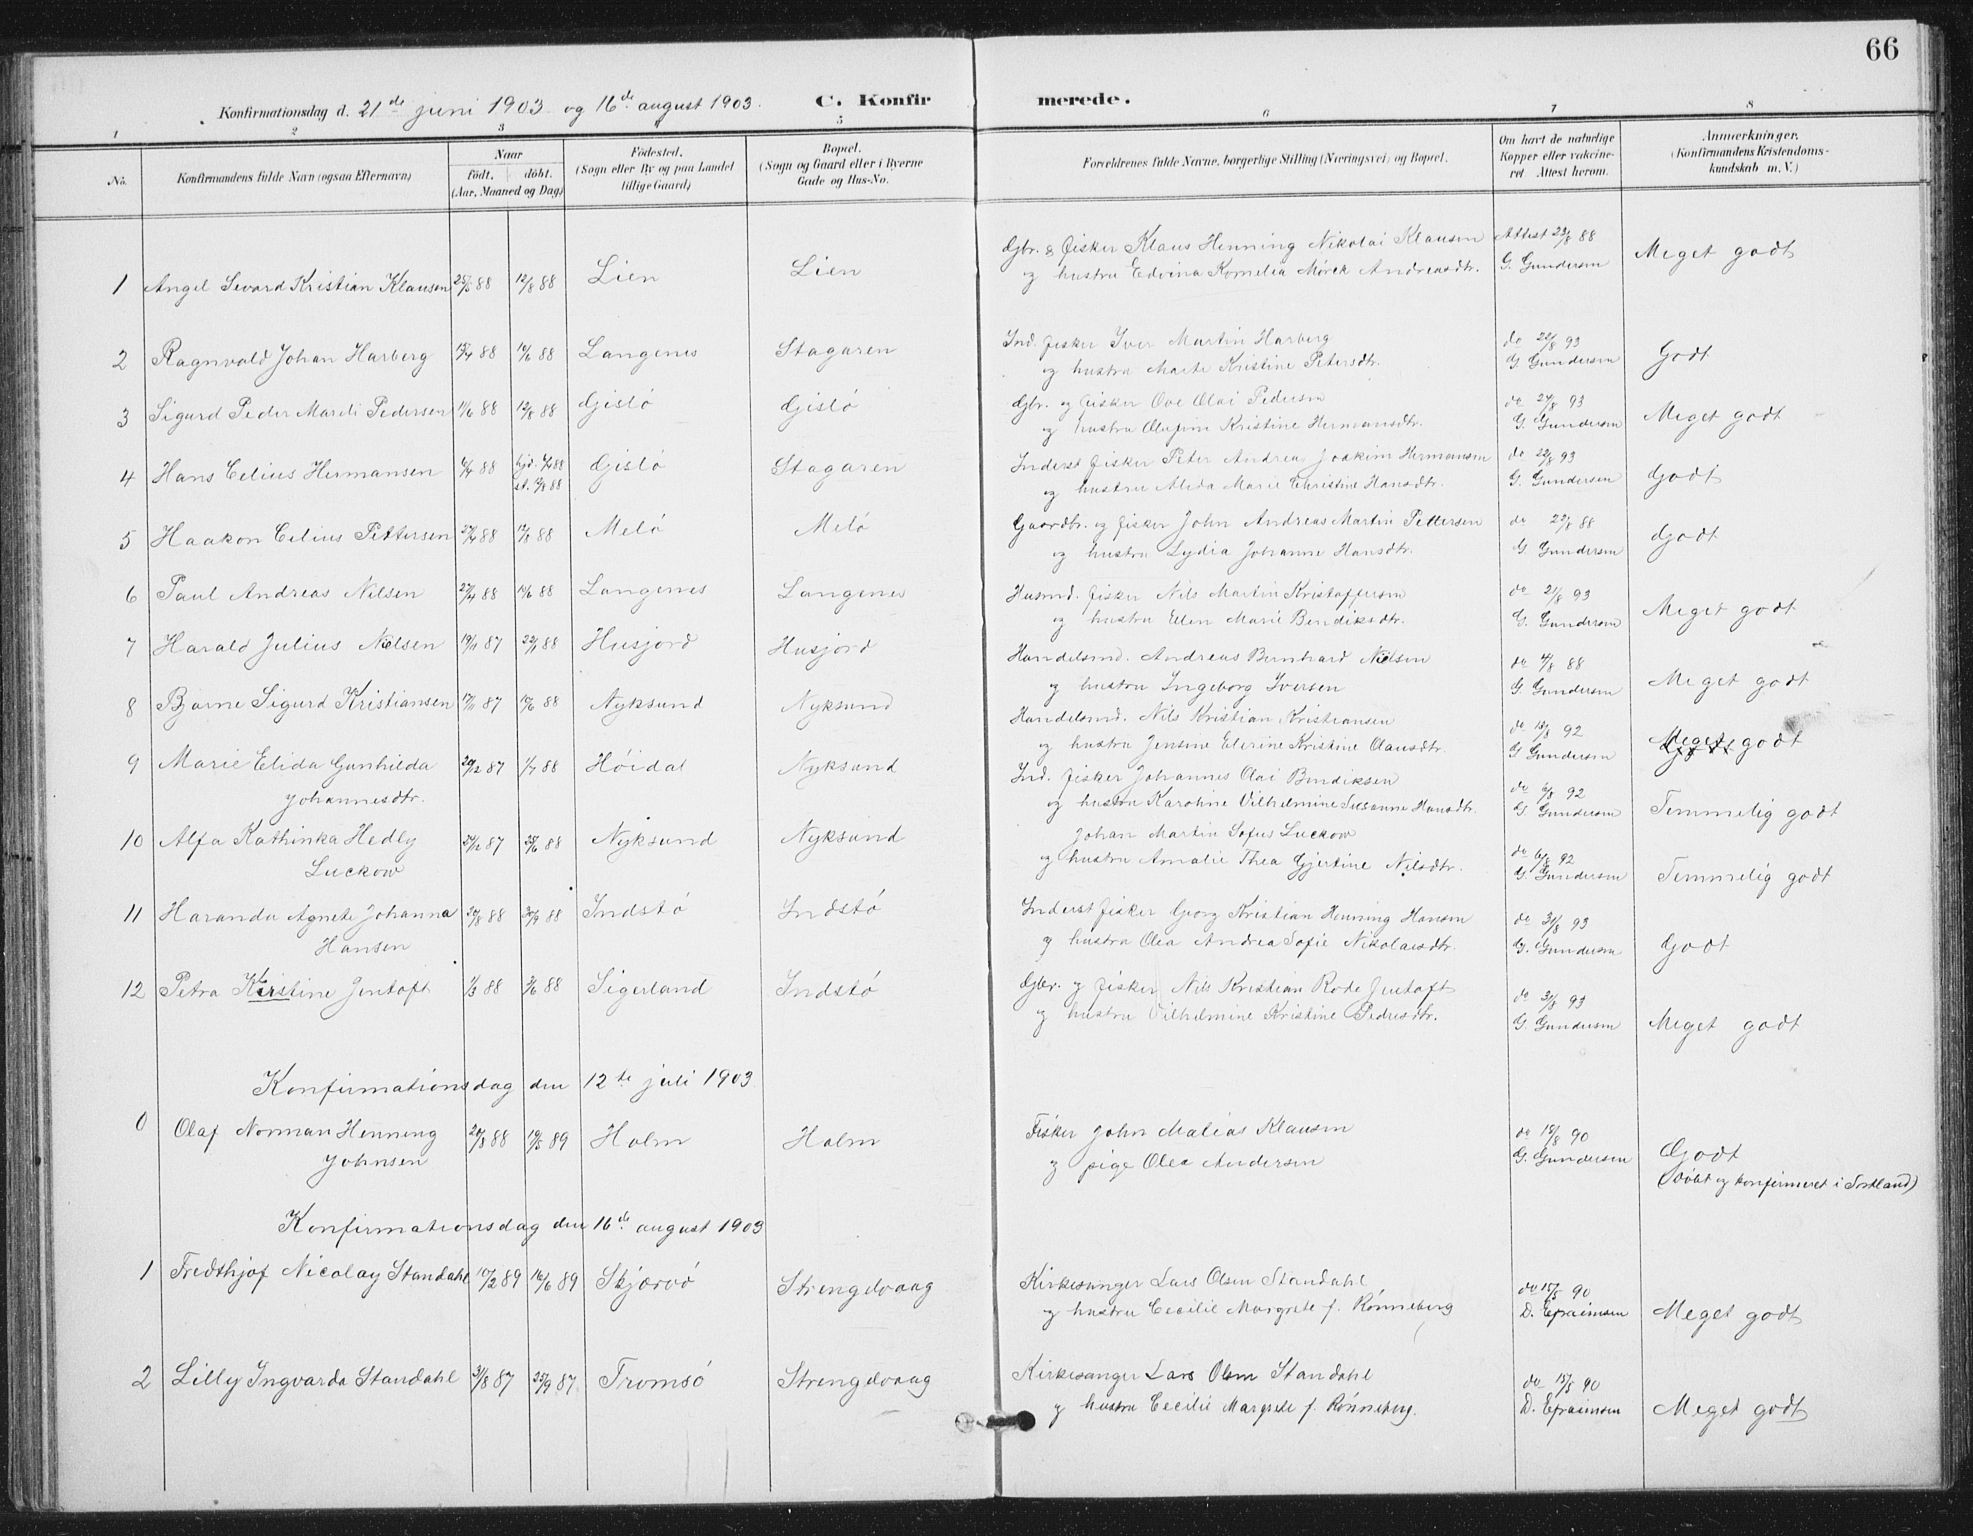 66
Konfirmationsdag d. 21de juni 1903 og 16de august 1903. C. Konfirmerede.
1 2 3 5 6 7 8
No. Konfirmandens fulde Navn (ogsaa Efternavn) Naar født. døbt. (Aar, Maaned og Dag) Fødested. (Sogn eller By og paa Landet tillige Gaard) Bopæl. (Sogn og Gaard eller i Byerne Gade og Hus-No. Forældrenes fulde Navne, borgerlige Stilling (Næringsvei) og Bopæl. Om havt de naturlige Kopper eller vakcineret Attest herom. Anmærkninger. (Konfirmandens Kristendomskundskab m. V.)
1 Angel Sevard Kristian Klausen 25/5 88 12/8 88 Lien Lien Gbr. & fisker Klaus Henning Nikolai Klausen Attest 23/8 88 Meget godt
og hustru Edvina Kornelia Mørck Andreasdtr. G. Gundersen
2 Ragnvald Johan Harberg 15/4 88 10/6 88 Langenes Stagaren Ind. fisker Iver Martin Harberg do 22/8 93 Godt
og hustru Marte Kristine Petersdtr. G Gundersen
3 Sigurd Peder Mareli Pedersen 11/6 88 12/8 88 Gislø Gislø Gbr. og fisker Ove Olai Pedersen do 24/8 93 Meget godt
og hustru Olufine Kristine Hermansdtr. G. Gundersen
4 Hans Celius Hermansen 4/4 88 hjd. 4/4 88 st. 12/8 88 Gislø Stagaren Inderst fisker Peter Andreas Joakim Hermansen do 22/8 93 Godt
og hustru Alida Marie Christine Hansdtr. G. Gundersen
5 Haakon Celius Pettersen 27/4 88 12/8 88 Melø Melø Gaardbr. og fisker John Andreas Martin Pettersen do 22/8 88 Godt
og hustru Lydia Johanne Hansdtr. G Gundersen
6 Paul Andreas Nilsen 27/4 88 10/6 88 Langenes Langenes Husmd. fisker Nils Martin Kristoffersen do 21/8 93 Meget godt
og hustru Ellen Marie Bendiksdtr. G. Gundersen
7 Harald Julius Nilsen 19/11 87 22/1 88 Husjord Husjord Handelsmd. Andreas Bernhard Nilsen do 4/8 88 Meget godt
og hustru Ingeborg Iversen G. Gundersen
8 Bjarne Sigurd Kristiansen 17/11 87 10/6 88 Nyksund Nyksund Handelsmd. Nils Kristian Kristiansen do 18/8 92 Meget godt
og hustru Jensine Elerine Kristine Olausdtr. G Gundersen
9 Marie Elida Gunhilda Johannesdtr. 20/12 87 1/7 88 Høidal Nyksund Ind. fisker Johannes Olai Bendiksen do 6/8 92 Temmelig godt
og hustru Karoline Vilhelmine Susanne Hansdtr. G. Gundersen
10 Alfa Kathinka Hedly Luckow 24/12 87 25/6 88 Nyksund Nyksund Johan Martin Sofus Luckow do 6/8 92 Temmelig godt
og hustru Amalie Thea Gjertine Nilsdtr. G. Gundersen
11 Haranda Agnete Johanna Hansen 20/8 88 30/9 88 Indstø Indstø Inderst fisker Georg Kristian Henning Hansen do 31/8 93 Godt
og hustru Olea Andrea Sofie Nikolaisdtr. G. Gundersen
12 Petra Kirstine Jentoft 1/3 88 3/6 88 Sigerland Indstø Gbr. og fisker Nils Kristian Rode Jentoft do 31/8 93 Meget godt
og hustru Vilhelmine Kristine Pedersdtr. G. Gundersen
Konfirmationsdag den 12te juli 1903
0 Olaf Norman Henning Johnsen 20/8 88 19/5 89 Holm Holm Fisker John Matias Klausen do 18/8 90 Godt
og pige Olea Andersen G. Gundersen (Døbt og konfirmeret i Sortland)
Konfirmationsdag den 16de august 1903
1 Fredthjof Nicolay Standahl 10/2 89 16/6 89 Skjærvø Strengelvaag Kirkesanger Lars Olsen Standahl do 15/5 90 Meget godt
og hustru Cecilie Margrete f. Rønneberg D. Efraimsen
2 Lilly Ingvarda Standahl 31/8 87 25/9 87 Tromsø Strengelvaag Kirkesanger Lars Olsen Standahl do 15/5 90 Meget godt
og hustru Cecilie Margrete f. Rønneberg. D. Efraimsen